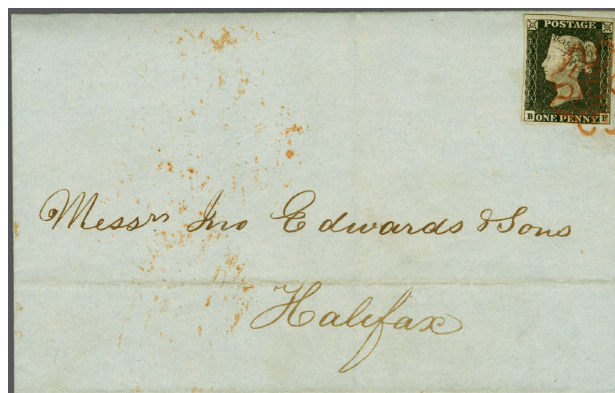 POSTAGE
B ONE PENNY F
Messrs Jno Edwards & Sons
Halifax